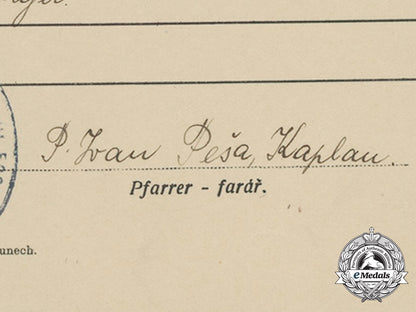 P. Ivan Peša, Kaplan.
Pfarrer - farář.
unech.
eMedals